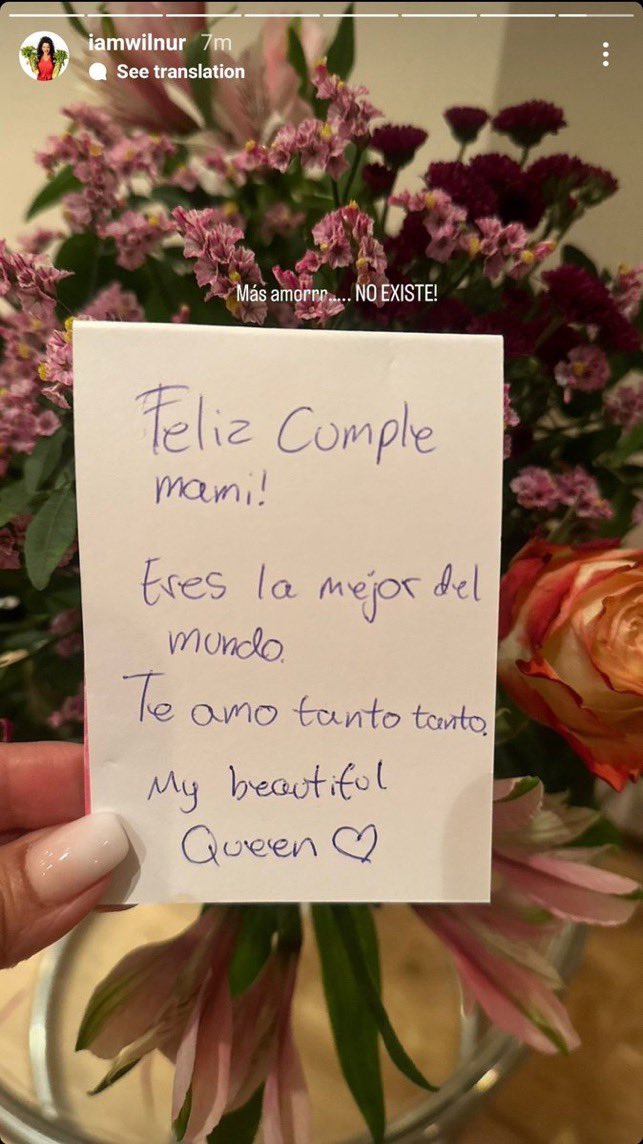 iamwilnur 7m
See translation
Más amorrr..... NO EXISTE!
Feliz Cumple
mami!
Eres la mejor del
mundo.
Te amo tanto tanto.
My beautiful
Queen ♡